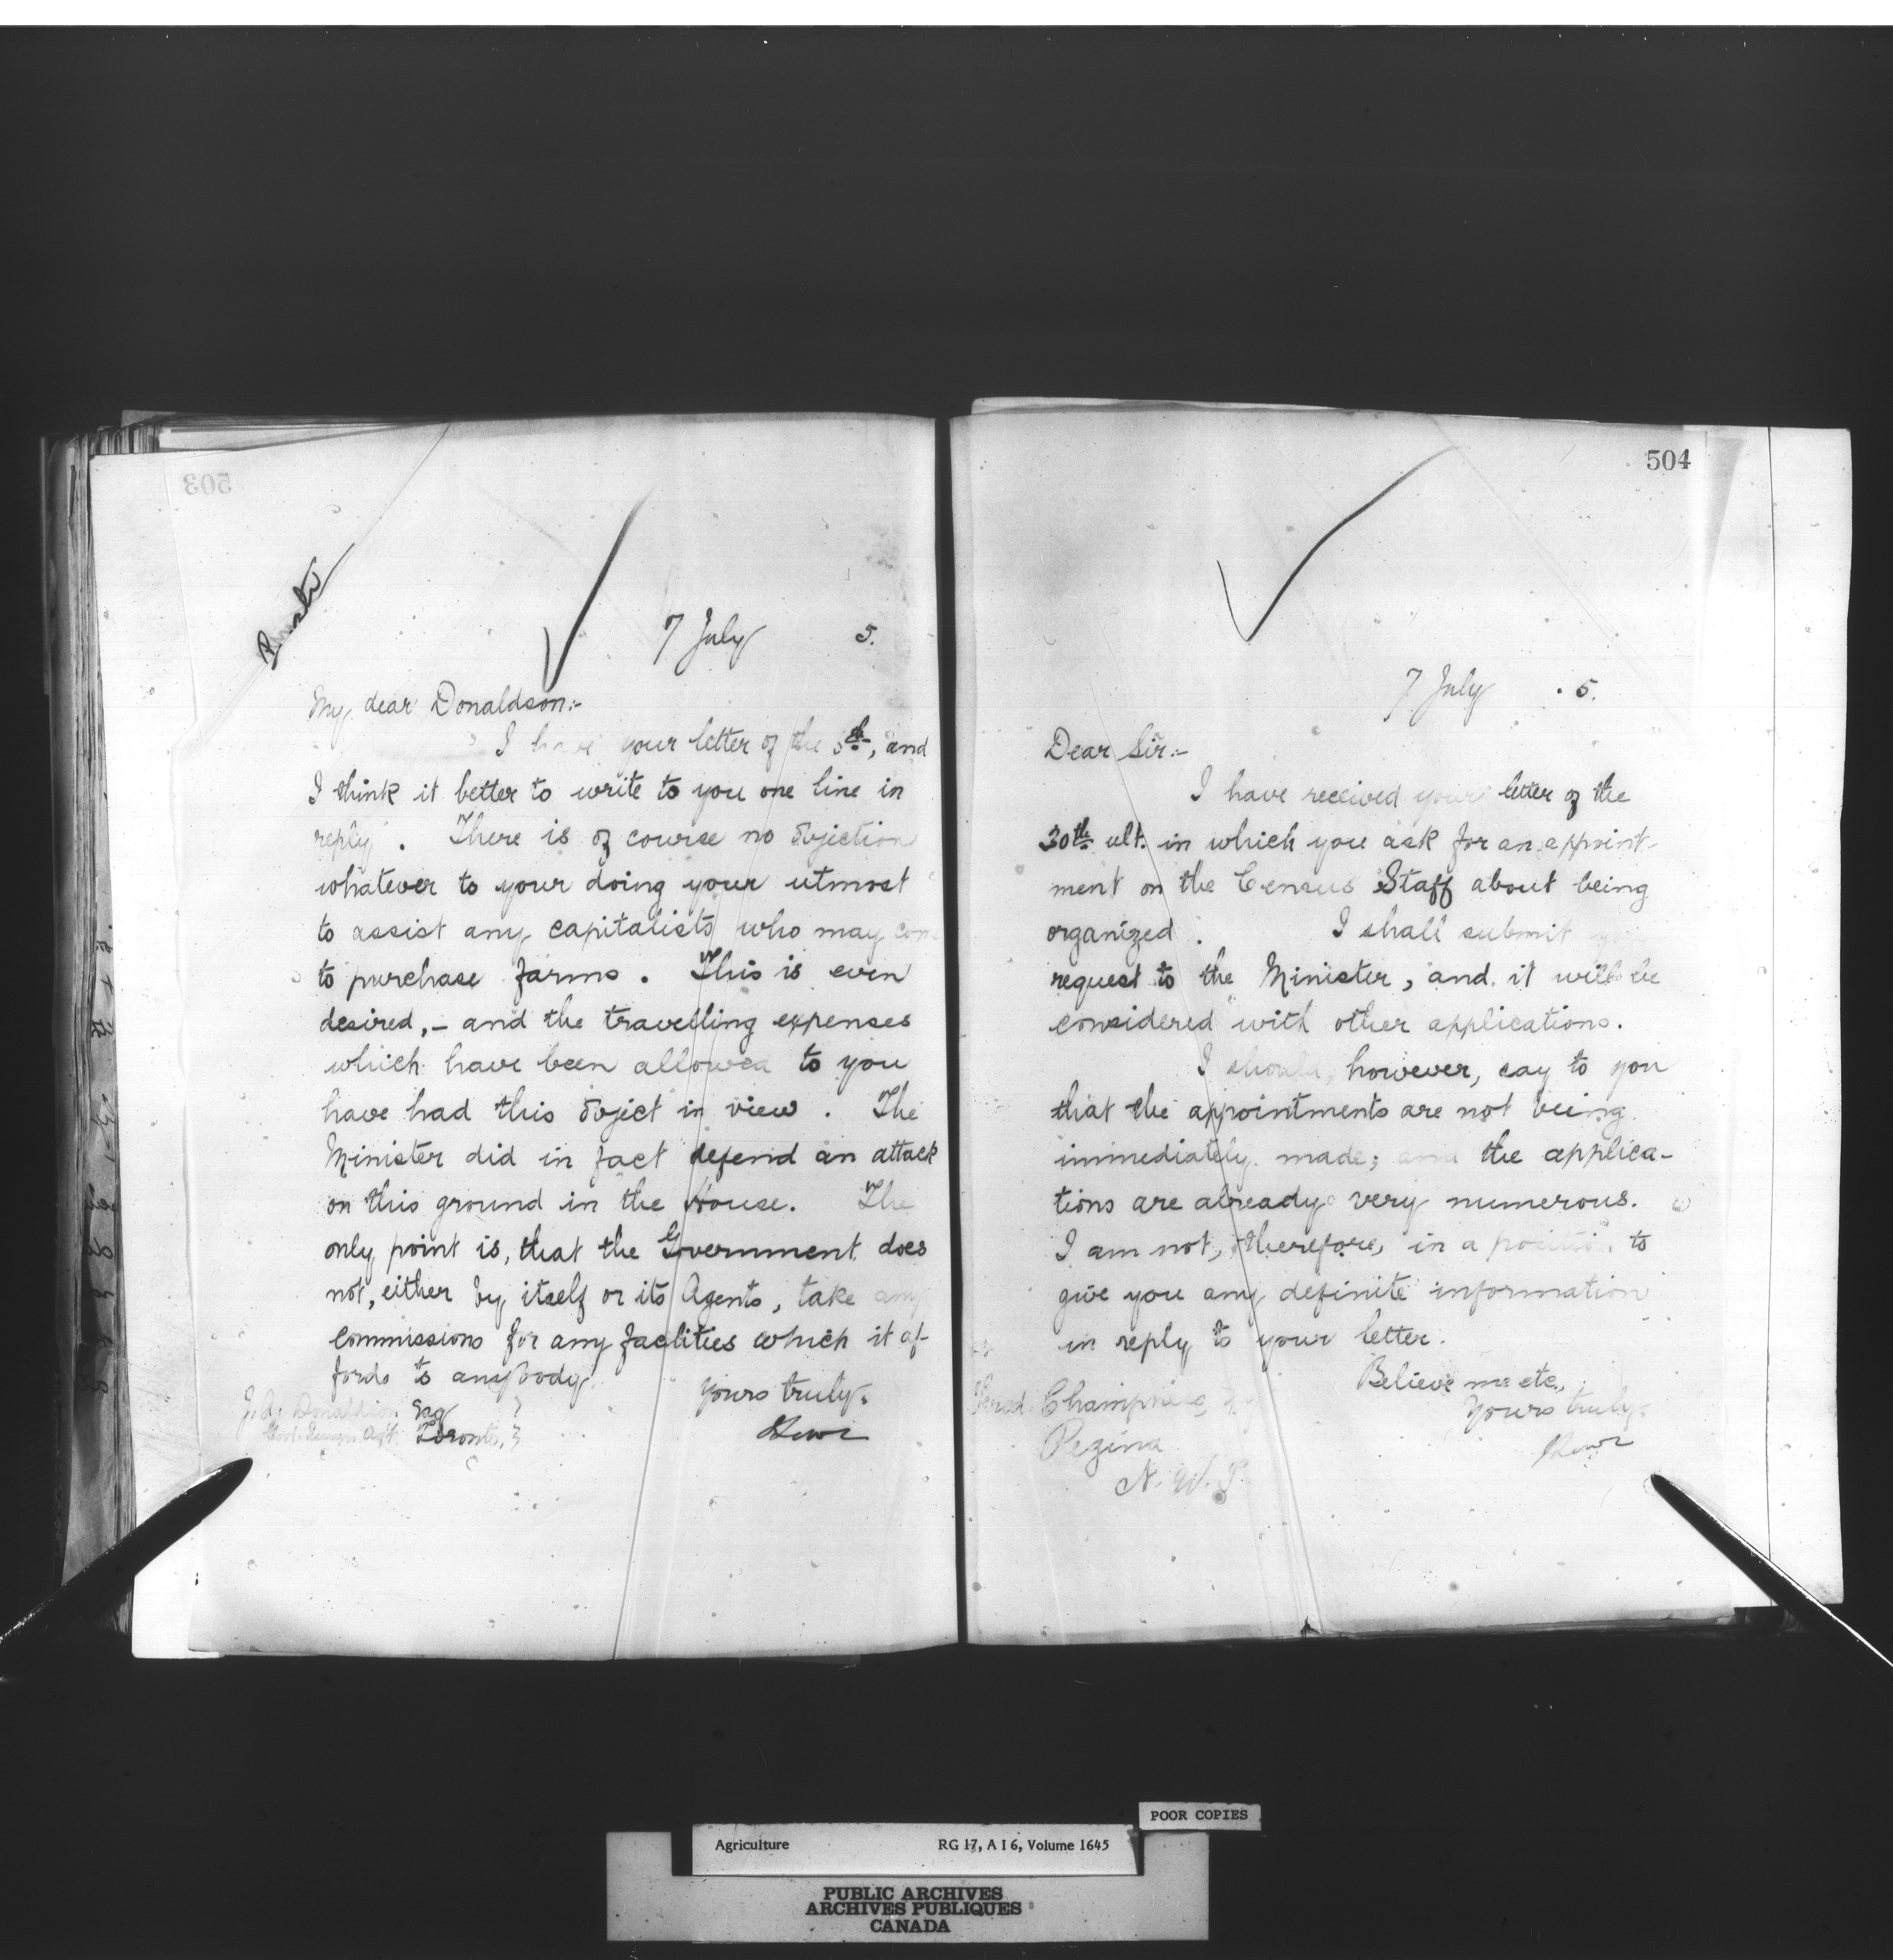 503
Private
7 July 5.
My dear Donaldson:-
I have your letter of the 5th, and
I think it better to write to you one line in
reply. There is of course no objection
whatever to your doing your utmost
to assist any capitalists who may come
to purchase farms. This is even
desired,- and the travelling expenses
which have been allowed to you
have had this object in view. The
Minister did in fact defend an attack
on this ground in the House. The
only point is, that the Government does
not, either by itself or its Agents, take any
commissions for any faclities which it af-
fords to anybody.
Yours truly.
J. A. Donaldson Esq
Govt. Immgn Agt. Toronto.
504
7 July 5.
Dear Sir:-
I have received your letter of the
30th ult. in which you ask for an appoint-
ment on the Census Staff about being
organized. I shall submit your
request to the Minister, and it will be
considered with other applications.
I should, however, say to you
that the appointments are not being
immediately made; and the applica-
tions are already very numerous.
I am not, therefore, in a position to
give you any definite information
in reply to your letter.
Believe me etc.,
Yours truly.
Champness
Regina
N. W. T.
POOR COPIES
Agriculture RG 17, A I 6, Volume 1645
PUBLIC ARCHIVES
ARCHIVES PUBLIQUES
CANADA